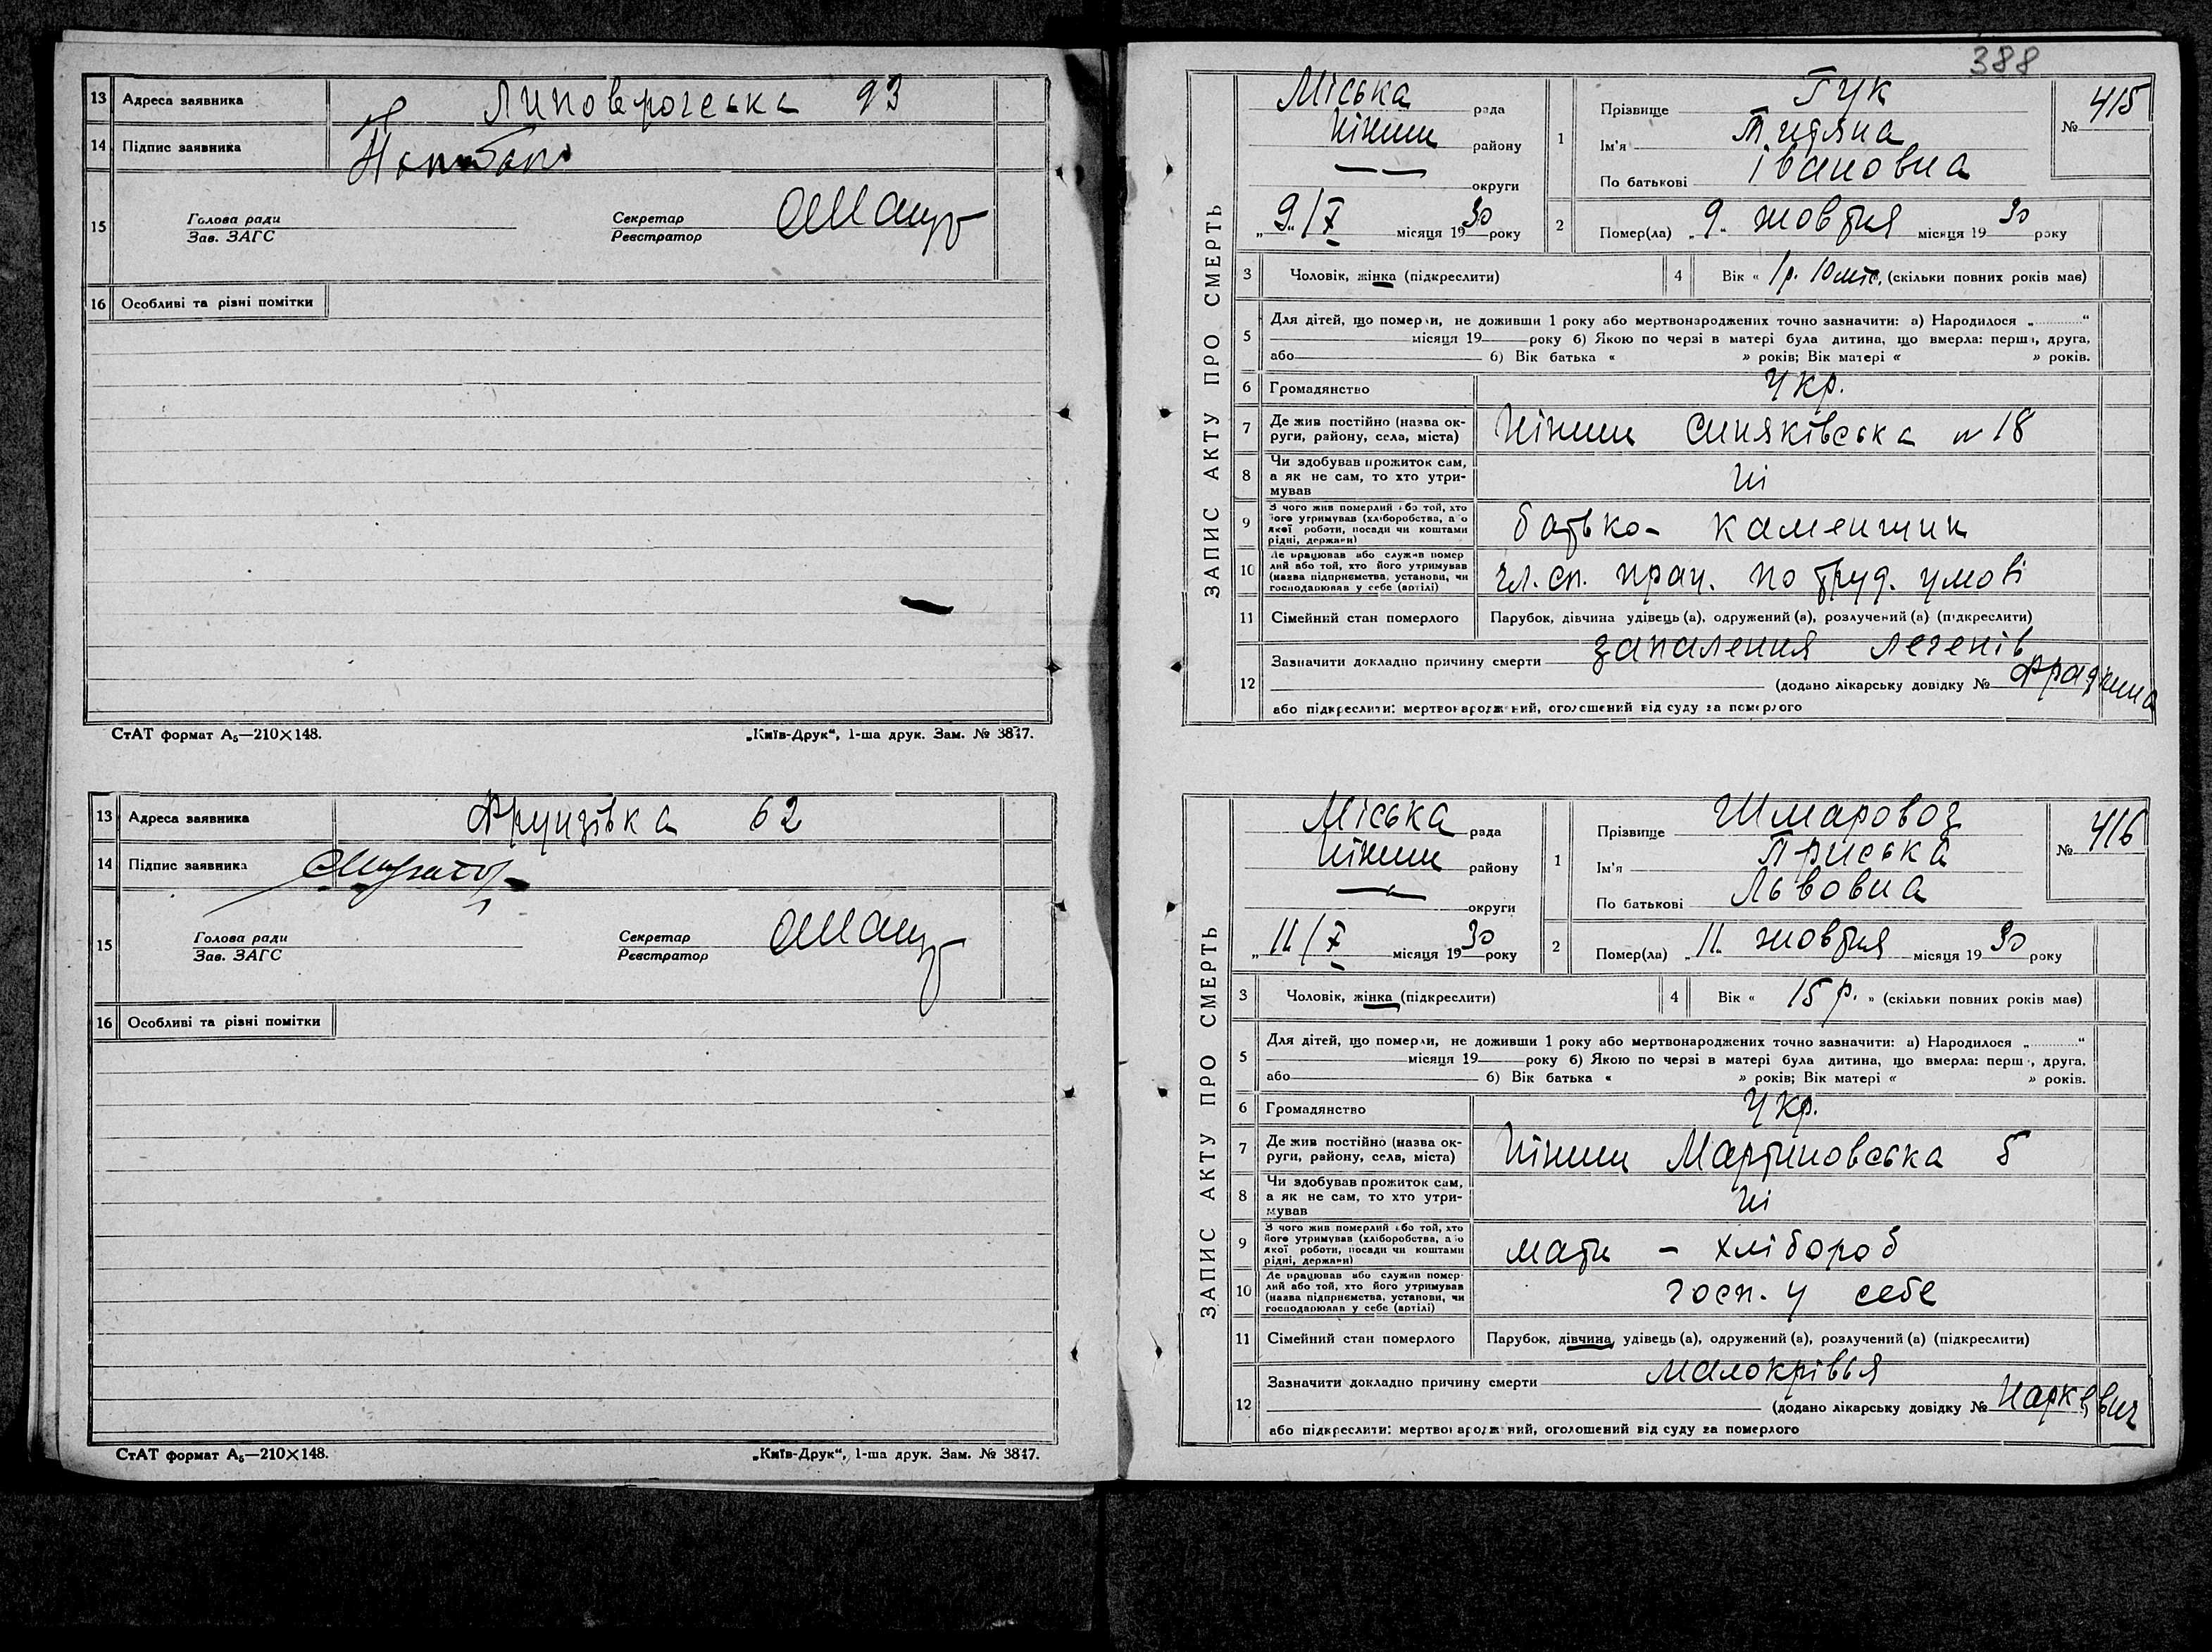 13 Адреса заявника Липоврогська 93
14 Підпис заявника
15 Голова ради
Зав. ЗАГС
Секретар
Реєстратор
16 Особливі та різні помітки
СтАТ формат А₅—210×148. „Київ-Друк“, 1-ша друк. Зам. № 3847.
13 Адреса заявника Фрунзівка 62
14 Підпис заявника
15 Голова ради
Зав. ЗАГС
Секретар
Реєстратор
16 Особливі та різні помітки
СтАТ формат А₅—210×148. „Київ-Друк“, 1-ша друк. Зам. № 3847.
388
ЗАПИС АКТУ ПРО СМЕРТЬ
Міська рада
Ніжин району
округи
„9“/X місяця 1930 року
1 Прізвище Гук
Ім'я Титяна
По батькові Івановна
№ 415
2 Помер(ла) „9“ жовтня місяця 1930 року
3 Чоловік, жінка (підкреслити)
4 Вік « 1 р. 10 міс. (скільки повних років має)
5 Для дітей, що померли, не доживши 1 року або мертвонароджених точно зазначити: а) Народилося „ “
місяця 19 року б) Якою по черзі в матері була дитина, що вмерла: перша, друга,
або б) Вік батька « » років; Вік матері « » років.
6 Громадянство Укр.
7 Де жив постійно (назва округи, району, села, міста) Ніжин Синяківська № 18
8 Чи здобував прожиток сам, а як не сам, то хто утримував Ні
9 З чого жив померлий або той, хто його утримував (хліборобства, або якої роботи, посади чи коштами рідні, держави) батько - каменщик
10 Де працював або служив померлий або той, хто його утримував (назва підприємства, установи, чи господарював у себе (артілі) чл. сп. прац. по труд. умові
11 Сімейний стан померлого Парубок, дівчина удівець (а), одружений (а), розлучений (а) (підкреслити)
12 Зазначити докладно причину смерти запалення легенів
(додано лікарську довідку № Фрадкина
або підкреслити: мертвонароджений, оголошений від суду за померлого
ЗАПИС АКТУ ПРО СМЕРТЬ
Міська рада
Ніжин району
округи
„11/X місяця 1930 року
1 Прізвище Шмаровоз
Ім'я Приська
По батькові Львовна
№ 416
2 Помер(ла) „11“ жовтня місяця 1930 року
3 Чоловік, жінка (підкреслити)
4 Вік « 15 р. » (скільки повних років має)
5 Для дітей, що померли, не доживши 1 року або мертвонароджених точно зазначити: а) Народилося „ “
місяця 19 року б) Якою по черзі в матері була дитина, що вмерла: перша, друга,
або б) Вік батька « » років; Вік матері « » років.
6 Громадянство Укр.
7 Де жив постійно (назва округи, району, села, міста) Ніжин Мартиновська 5
8 Чи здобував прожиток сам, а як не сам, то хто утримував Ні
9 З чого жив померлий або той, хто його утримував (хліборобства, або якої роботи, посади чи коштами рідні, держави) мати - хлібороб
10 Де працював або служив померлий або той, хто його утримував (назва підприємства, установи, чи господарював у себе (артілі) госп. у себе
11 Сімейний стан померлого Парубок, дівчина, удівець (а), одружений (а), розлучений (а) (підкреслити)
12 Зазначити докладно причину смерти малокрівья
(додано лікарську довідку № Наркевич
або підкреслити: мертвонароджений, оголошений від суду за померлого